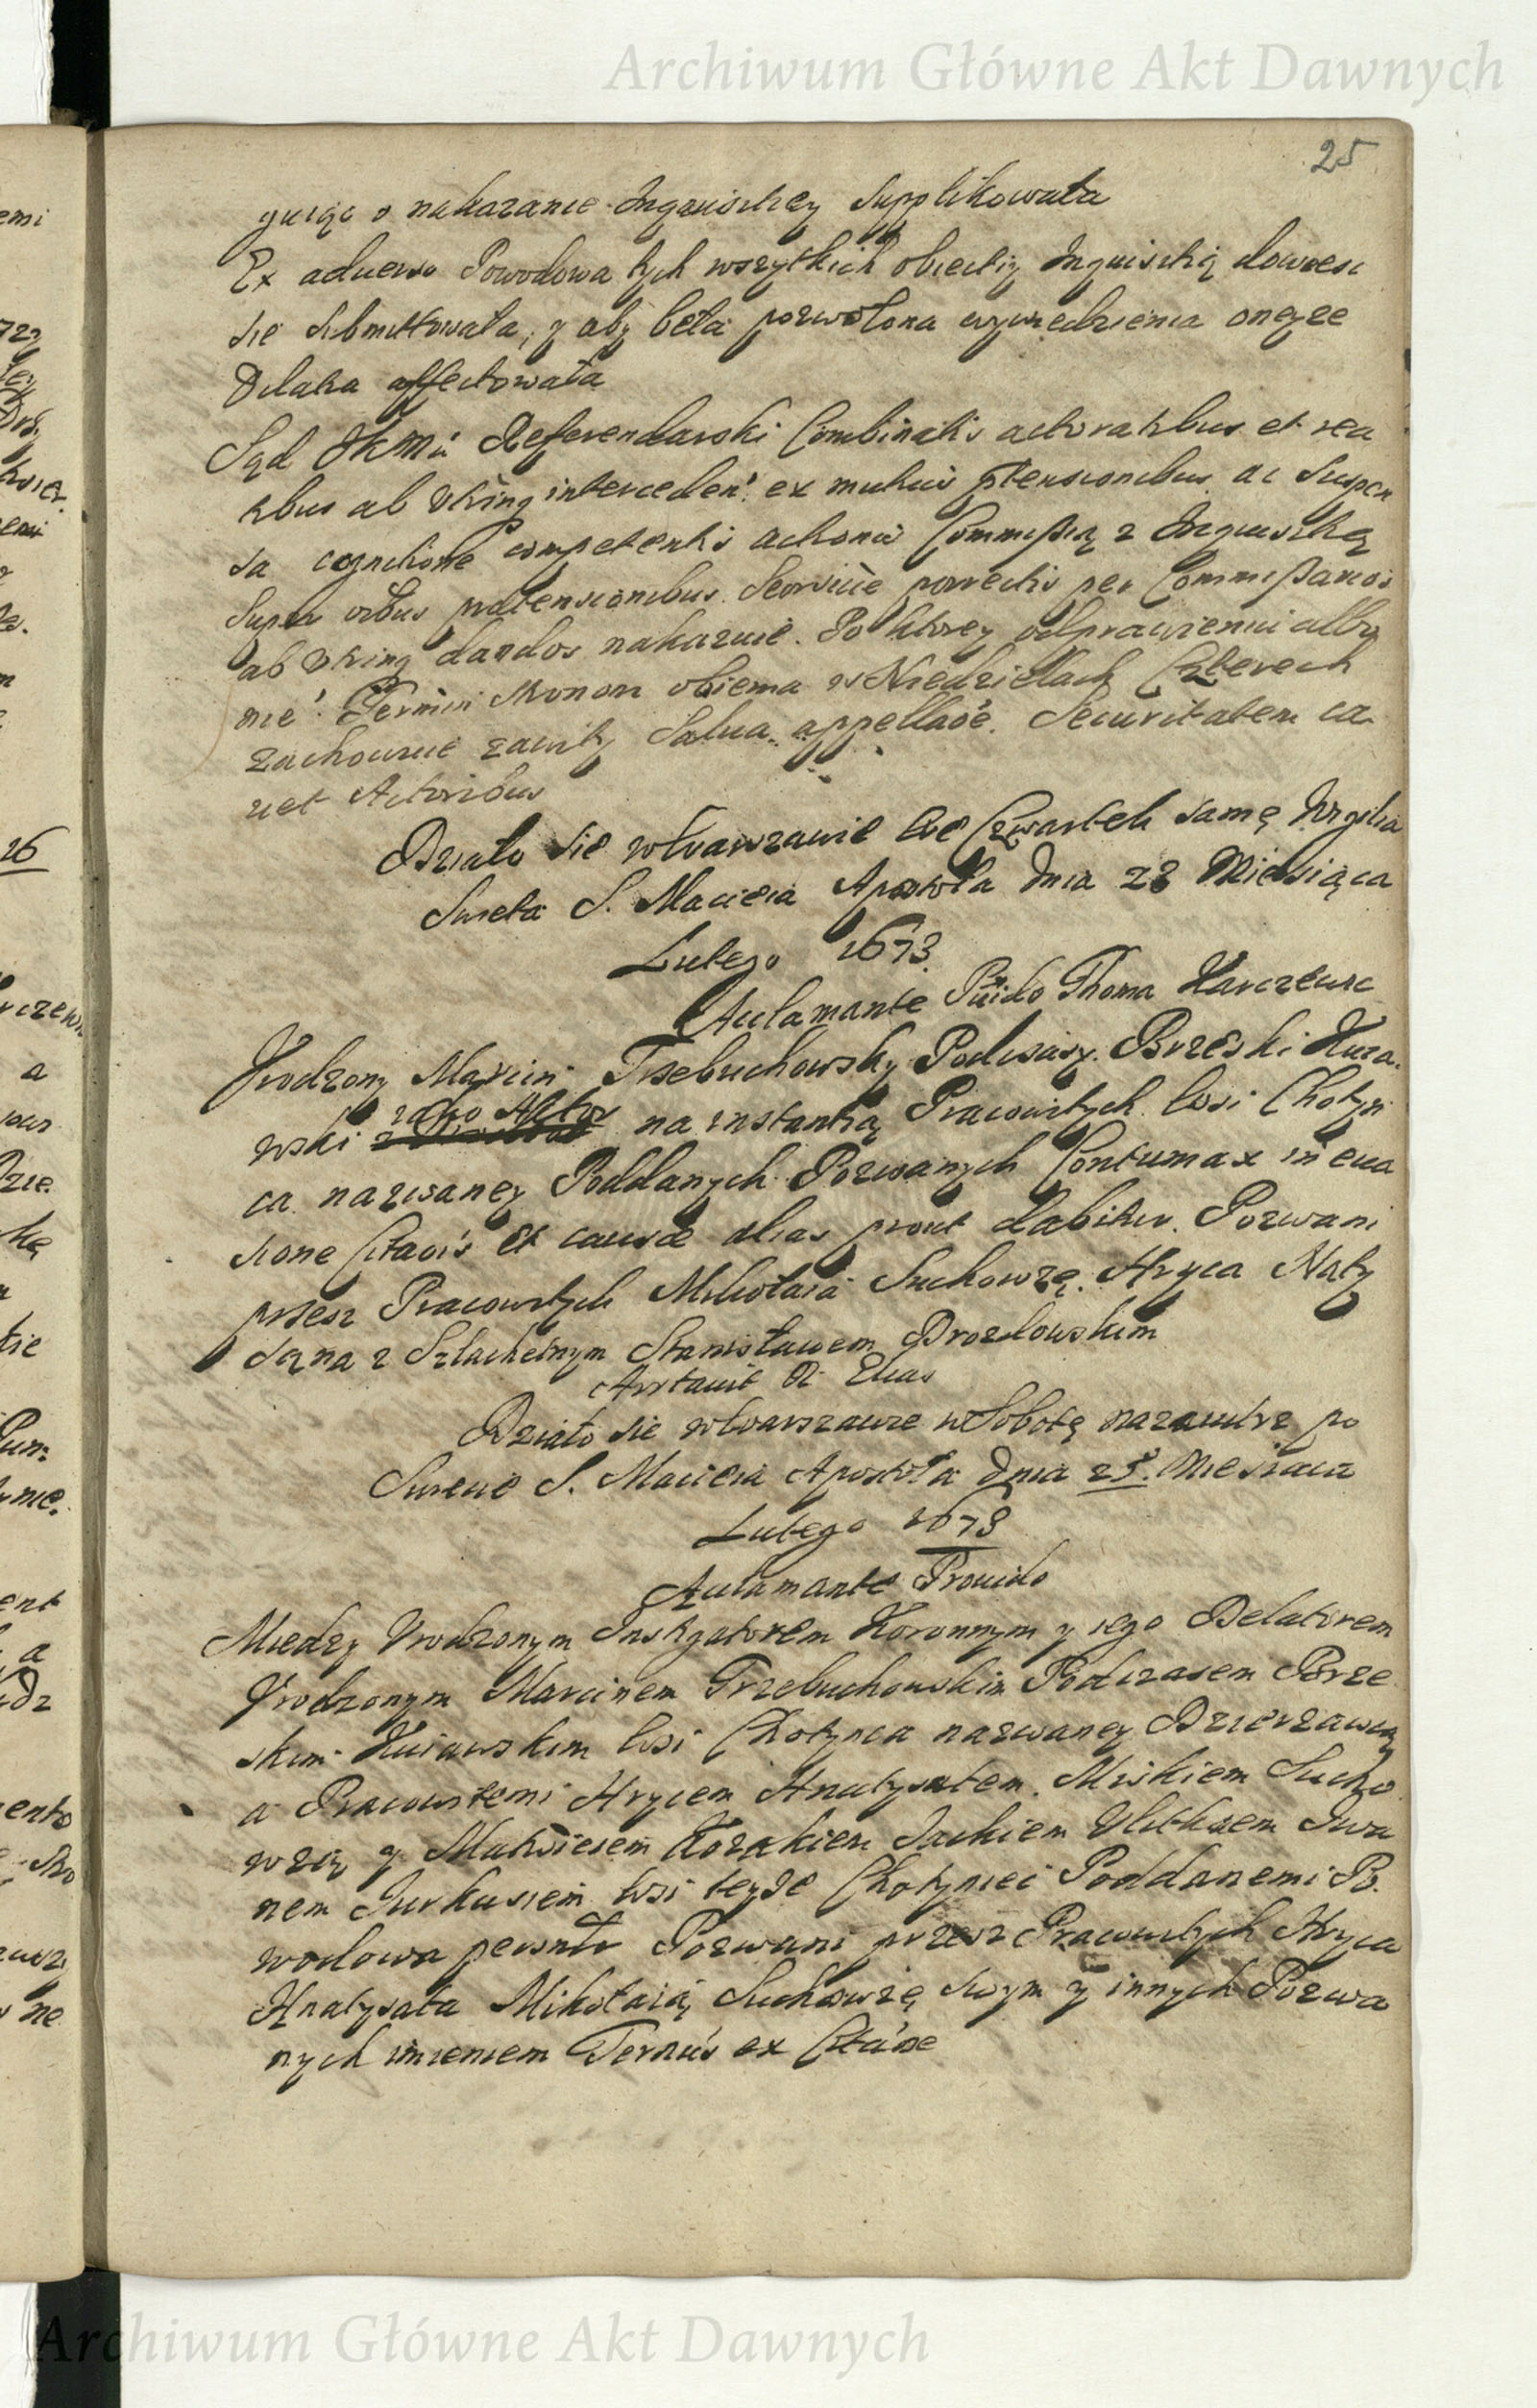 Archiwum Główne Akt Dawnych
25
guiąc o nakazanie Inquisitiey supplikowała
Ex aduerso Powodowa tych wszytkich obiectiy Inquisitią dowiesc
sie submittowała, y aby beła pozwolona wywiedzienia oneyze
Dilatia affectowała
Sąd JKMci Referendarski Combinatis actoratibus et rea
tibus ab vtring interceden: ex mutuis ptensionibus ac suspen
sa cognitione competentis actionis Commissią z Inquisitią
super vtbus prætensionibus Seorsiue porrectis per Commissarios
ab vtring dandos nakazuie. Po ktorey odprawieniu albo
nie: Termin stronom obiema w Niedzielach Czterech
zachowuie zawity salua appellaõe. Securitatem ca
uet Actoribus
Działo sie w Warszawie we Czwartek samę Wigilią
Swięta S. Macieia Apostoła Dnia 23 Miesiąca
Lutego 1673.
Aclamante Puido Thoma Harczewic
Vrodzony Marcin Trzebuchowsky Podczaszy Brzeski Kuia
wski iako Aktor na instantią Pracowitych wsi Chotyni
ca nazwaney Poddanych Pozwanych Contumax in eua
sione Citaõis et causæ alias prout dabitur. Pozwani
przesz Pracowitych Mikołaia Suchowzę. Hryca Naty
sęna z Szlachetnym Stanisławem Drozdowskim
Arrtauit R. Elias
Działo sie w Warszawie w Sobotę nazaiutrz po
Swiecie S. Macieia Apostoła Dnia 25. Miesiąca
Lutego 1673
Aclamante Prouido
Miedzy Vrodzonym Instigatorem Koronnym y iego Delatorem
Vrodzonym Marcinem Trzebuchowskim Podczasem Brze
skim Kuiawskim wsi Chotynca nazwaney Dzierzawcą
a Pracowitemi Hrycem Hnatysatem. Miskiem Sucho
wzią y Matwieiem Kozakiem Jackiem Iwa
nem Jurkusiem wsi teyze Chotyniec Poddanemi Po
wodowa Pozwani przesz Pracowitych Hryca
Hnatysata Mikołaią Suchowzę swym y innych Pozwa
nych imieniem Ternús ex Citáõe
Archiwum Główne Akt Dawnych